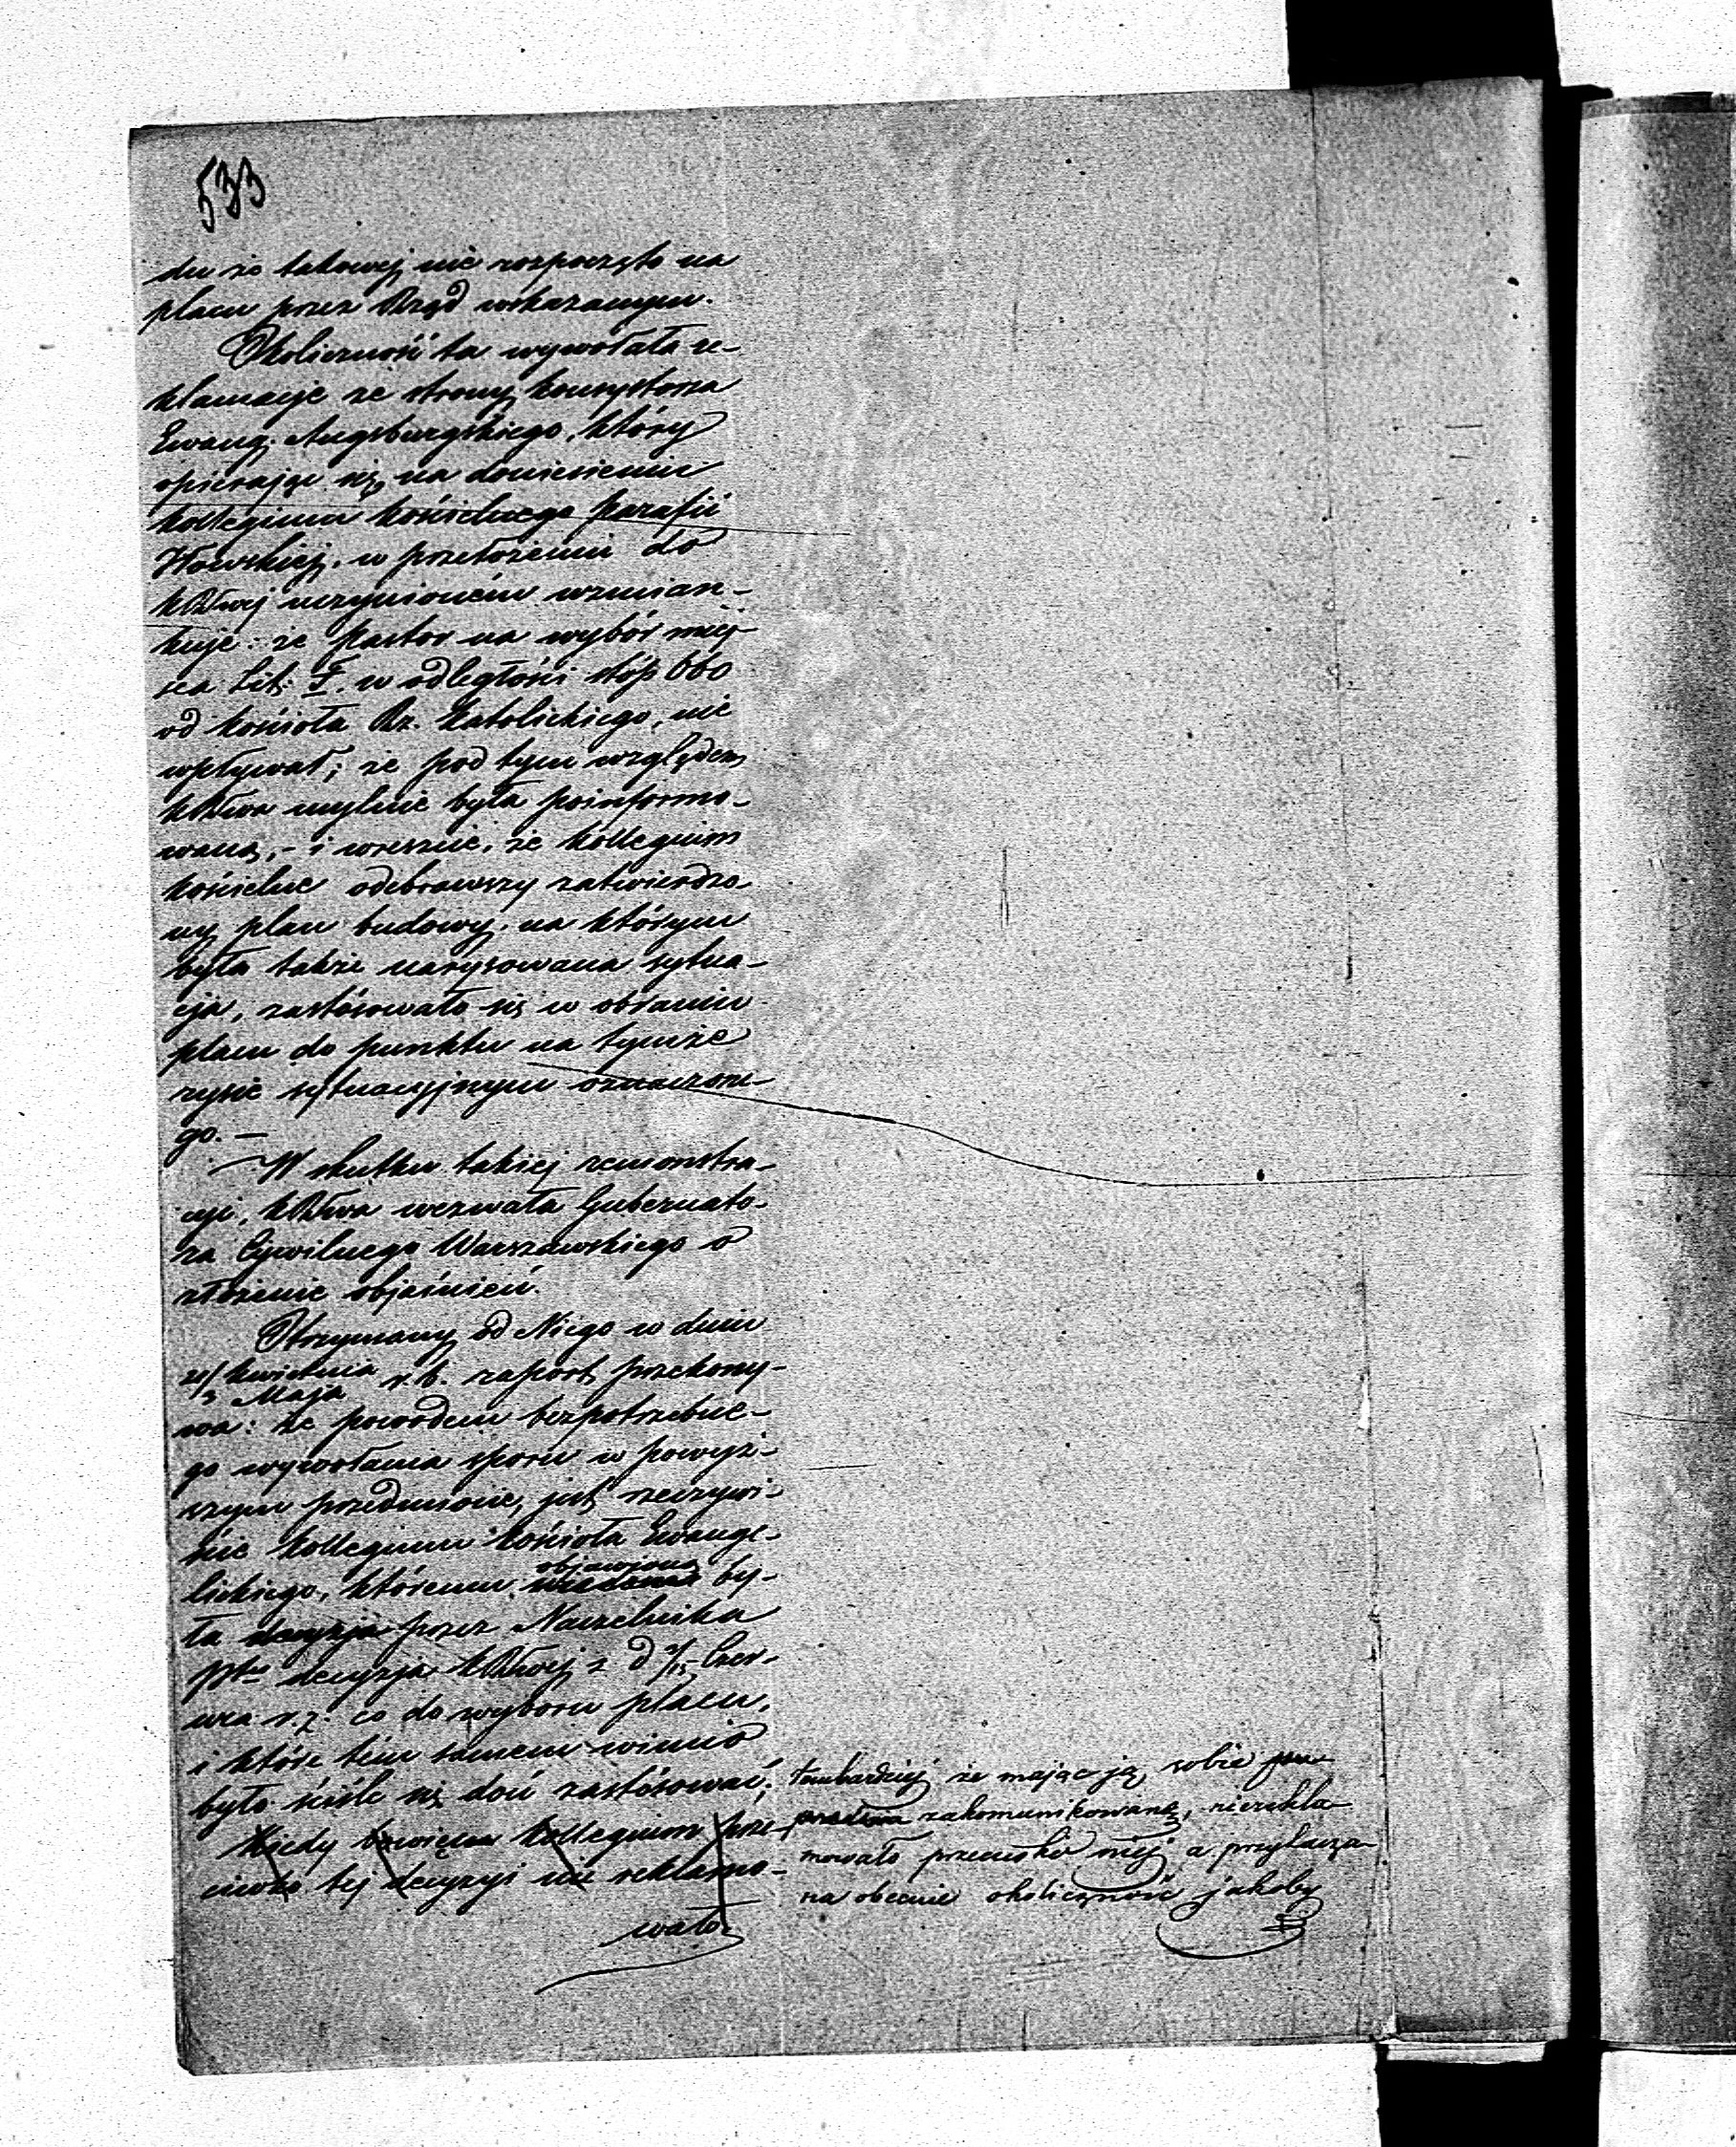 533
du że takowej nie rozpoczęto na
placu przez Rząd wskazanym.
Okoliczność ta wywołała re-
klamacje ze strony konsystorza
Ewang. Augsburgskiego, który
opierając się na doniesieniu
kollegium kościelnego parafii
Iłowskiej, w przełożeniu do
KRŁwej uczynionem wzmian-
kuje: że pastor na wybór miej-
sca Lit: F. w odległości stóp 660
od kościoła Rz. Katolickiego, nie
wpływał; że pod tym względem
KRŁwa mylnie była poinformo-
waną, - i wreszcie, że kollegium
kościelne odebrawszy zatwierdzo-
ny plan budowy, na którym
była także narysowana sytua-
cja, zastósowało się w obraniu
placu do punktu na tymże
rysie sytuacyjnym oznaczone-
go. —
W skutku takiej remonstra-
cyi, KRŁwa wezwała Gubernato-
ra Cywilnego Warszawskiego o
złożenie objaśnień.
Otrzymany od Niego w dniu
21/3 Kwietnia/Maja r. b. raport przekony-
wa: że powodem bezpotrzebne-
go wywołania sporu w powyż-
szym przedmiocie, jest rzeczywi-
ście kollegium kościoła Ewange-
objawioną
lickiego, któremu by-
ła decyzja przez Naczelnika
Ptu decyzja KRŁwej z d 3/15 Czer-
wca r. z. co do wyboru placu,
i które tém samem winno
było ściśle się doń zastósować;
Kiedy bowiem kollegium prze-
ciwko tej decyzyi nie reklamo-
wało
tembardziej że mając ją sobie
zakomunikowaną, niereklа-
mowało przeciwko niej a przytacza-
na obecnie okoliczność jakoby